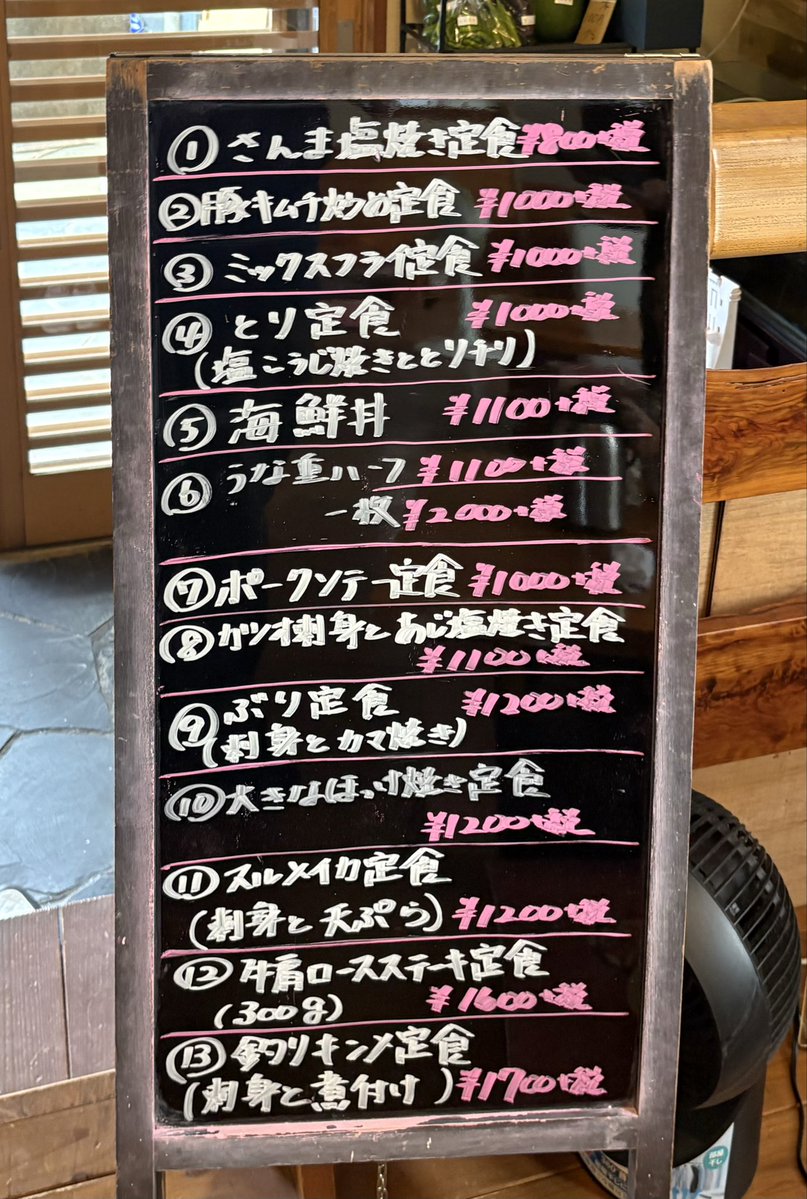 ① さんま塩焼き定食 ¥800+税
② 豚キムチ炒め定食 ¥1000+税
③ ミックスフライ定食 ¥1000+税
④ とり定食 ¥1000+税
(塩こうじ焼きととリチリ)
⑤ 海鮮丼 ¥1100+税
⑥ うな重ハーフ ¥1100+税
一枚 ¥2000+税
⑦ ポークソテー定食 ¥1000+税
⑧ カツオ刺身とあじ塩焼き定食
¥1100+税
⑨ ぶり定食 ¥1200+税
(刺身とカマ焼き)
⑩ 大きなほっけ焼き定食
¥1200+税
⑪ スルメイカ定食
(刺身と天ぷら) ¥1200+税
⑫ 牛肩ロースステーキ定食
(300g) ¥1600+税
⑬ 釣りキンメ定食
(刺身と煮付け) ¥1700+税
部屋
干し